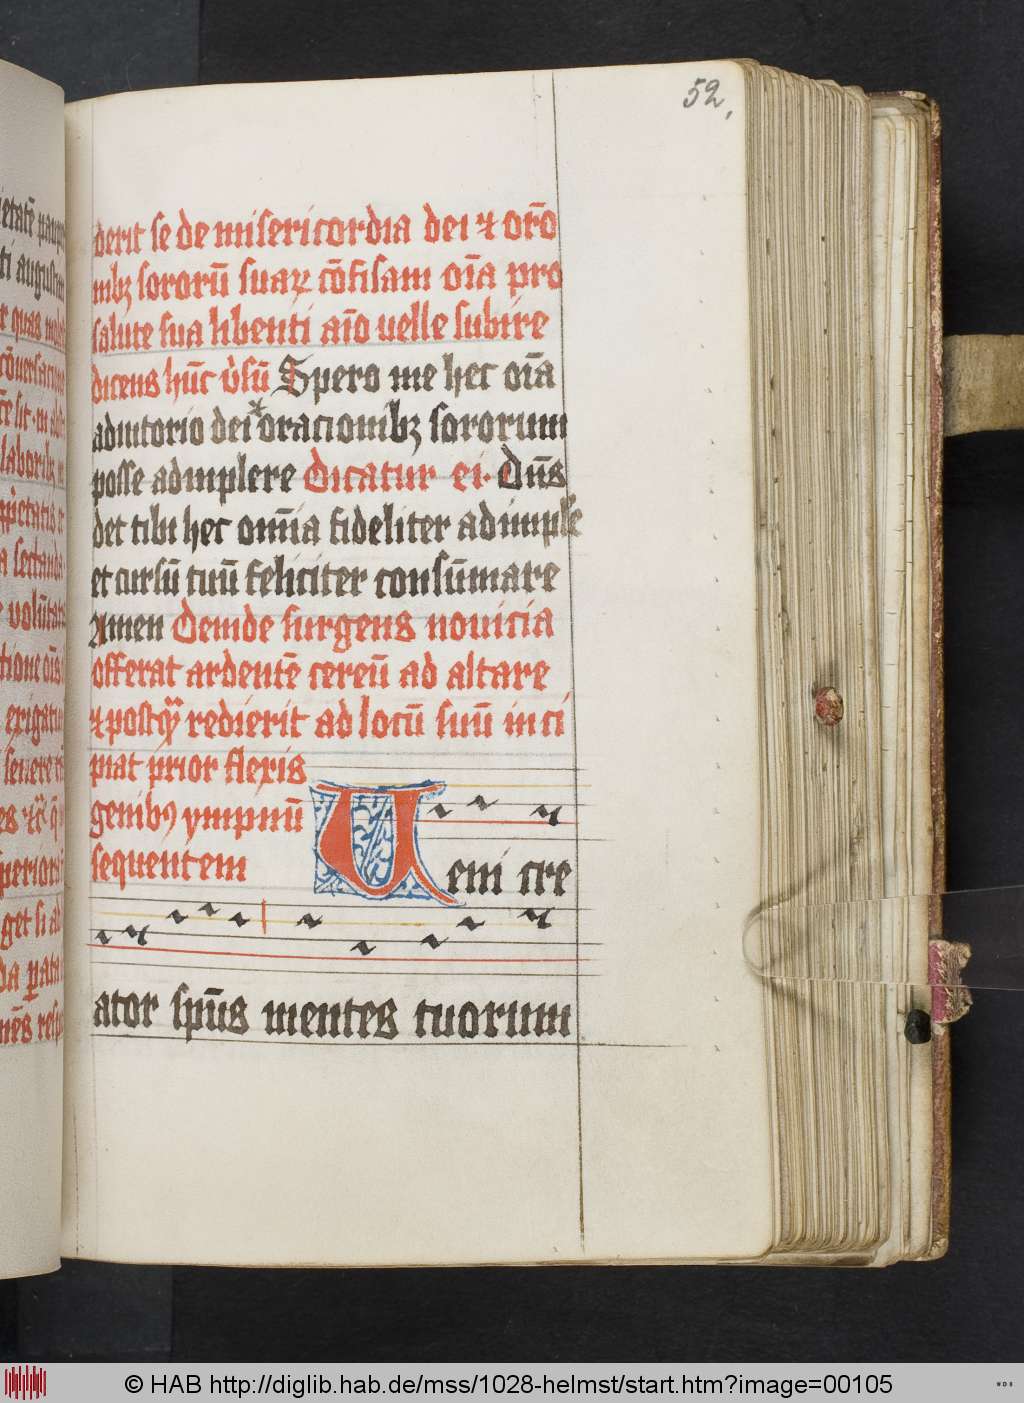 52,
derit se de misericordia dei ⁊ or̄o
nibꝫ sororū suaꝝ cōfisam oīa pro
salute sua libenti aīo uelle subire
dicens hūc v̓sū Spero me hec oīa
adiutorio dei ⁊ oracionibꝫ sororum
posse adimplere Dicatur ei· Dūs
det tibi hec om̄ia fideliter adimple᷒
et cursū tuū feliciter consūmare
Amen Deinde surgens nouicia
offerat ardentē cereū ad altare
⁊ postqꝫ redierit ad locū suū inci
piat prior flexis
genibꝰ ympnū
sequentem
Ueni cre
ator sp̄us mentes tuorum
© HAB http://diglib.hab.de/mss/1028-helmst/start.htm?image=00105